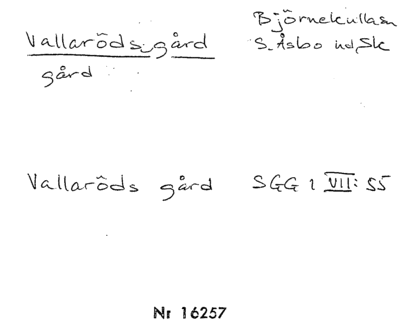 Vallaröds-gård
gård
Björnekulla sn
S. Åsbo hd, Sk
Vallaröds gård SGG 1 VII: 55
Nr 16257